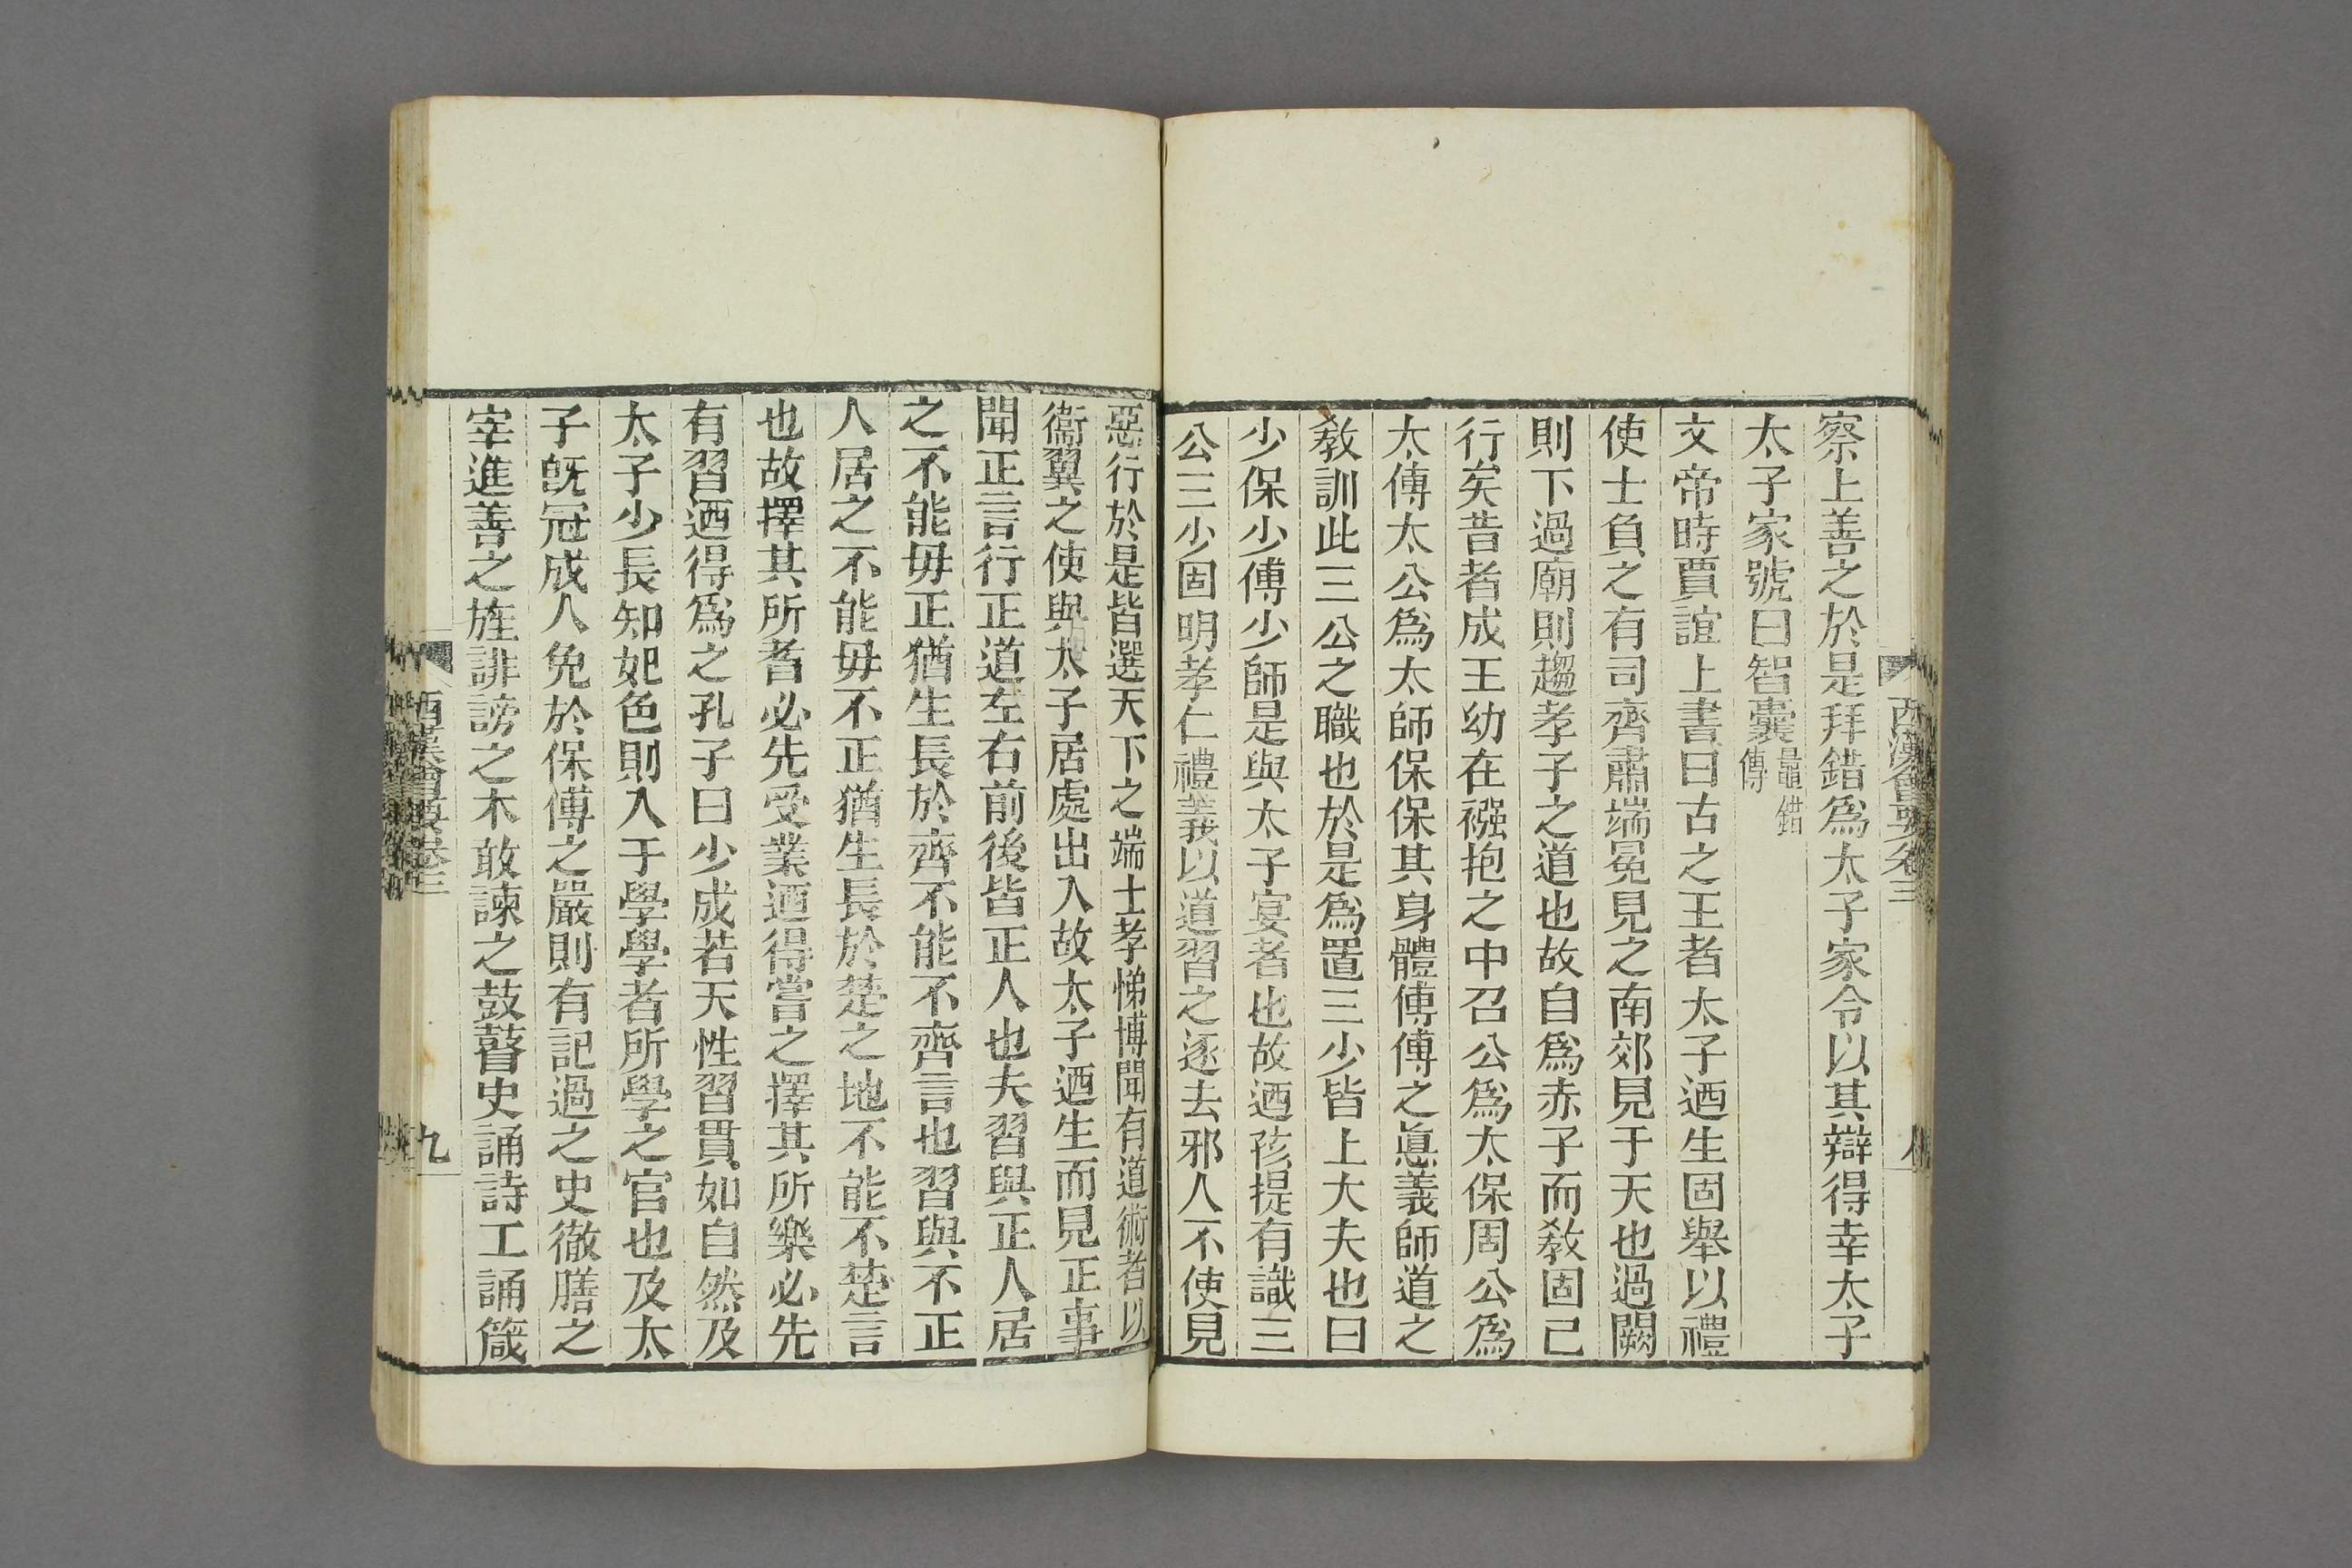 西漢會要卷三
察上善之於是拜錯爲太子家令以其辯得幸太子
太子家號曰智囊鼂錯傳
文帝時賈誼上書曰古之王者太子迺生固舉以禮
使士負之有司齊肅端冕見之南郊見于天也過闕
則下過廟則趨孝子之道也故自爲赤子而敎固已
行矣昔者成王幼在襁抱之中召公爲太保周公爲
太傅太公爲太師保保其身體傅傅之悳義師道之
敎訓此三公之職也於是爲置三少皆上大夫也曰
少保少傅少師是與太子宴者也故迺孩提有識三
公三少固明孝仁禮義以道習之逐去邪人不使見
惡行於是皆選天下之端士孝悌博聞有道術者以
衞翼之使與太子居處出入故太子迺生而見正事
聞正言行正道左右前後皆正人也夫習與正人居
之不能毋正猶生長於齊不能不齊言也習與不正
人居之不能毋不正猶生長於楚之地不能不楚言
也故擇其所耆必先受業迺得嘗之擇其所樂必先
有習迺得爲之孔子曰少成若天性習貫如自然及
太子少長知妃色則入于學學者所學之官也及太
子旣冠成人免於保傅之嚴則有記過之史徹膳之
宰進善之旌誹謗之木敢諫之鼓瞽史誦詩工誦箴
西漢會要卷三
九